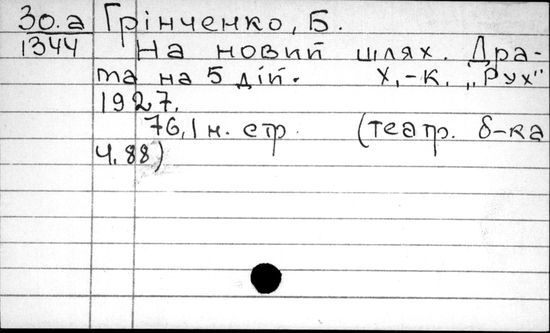 30.а Грінченко, Б.
1344 На новий шлях. Дра-
ма на 5 дій. Х.,-к. „Рух"
1927.
76,1 н. стр. (театр. б-ка
Ч, 88)